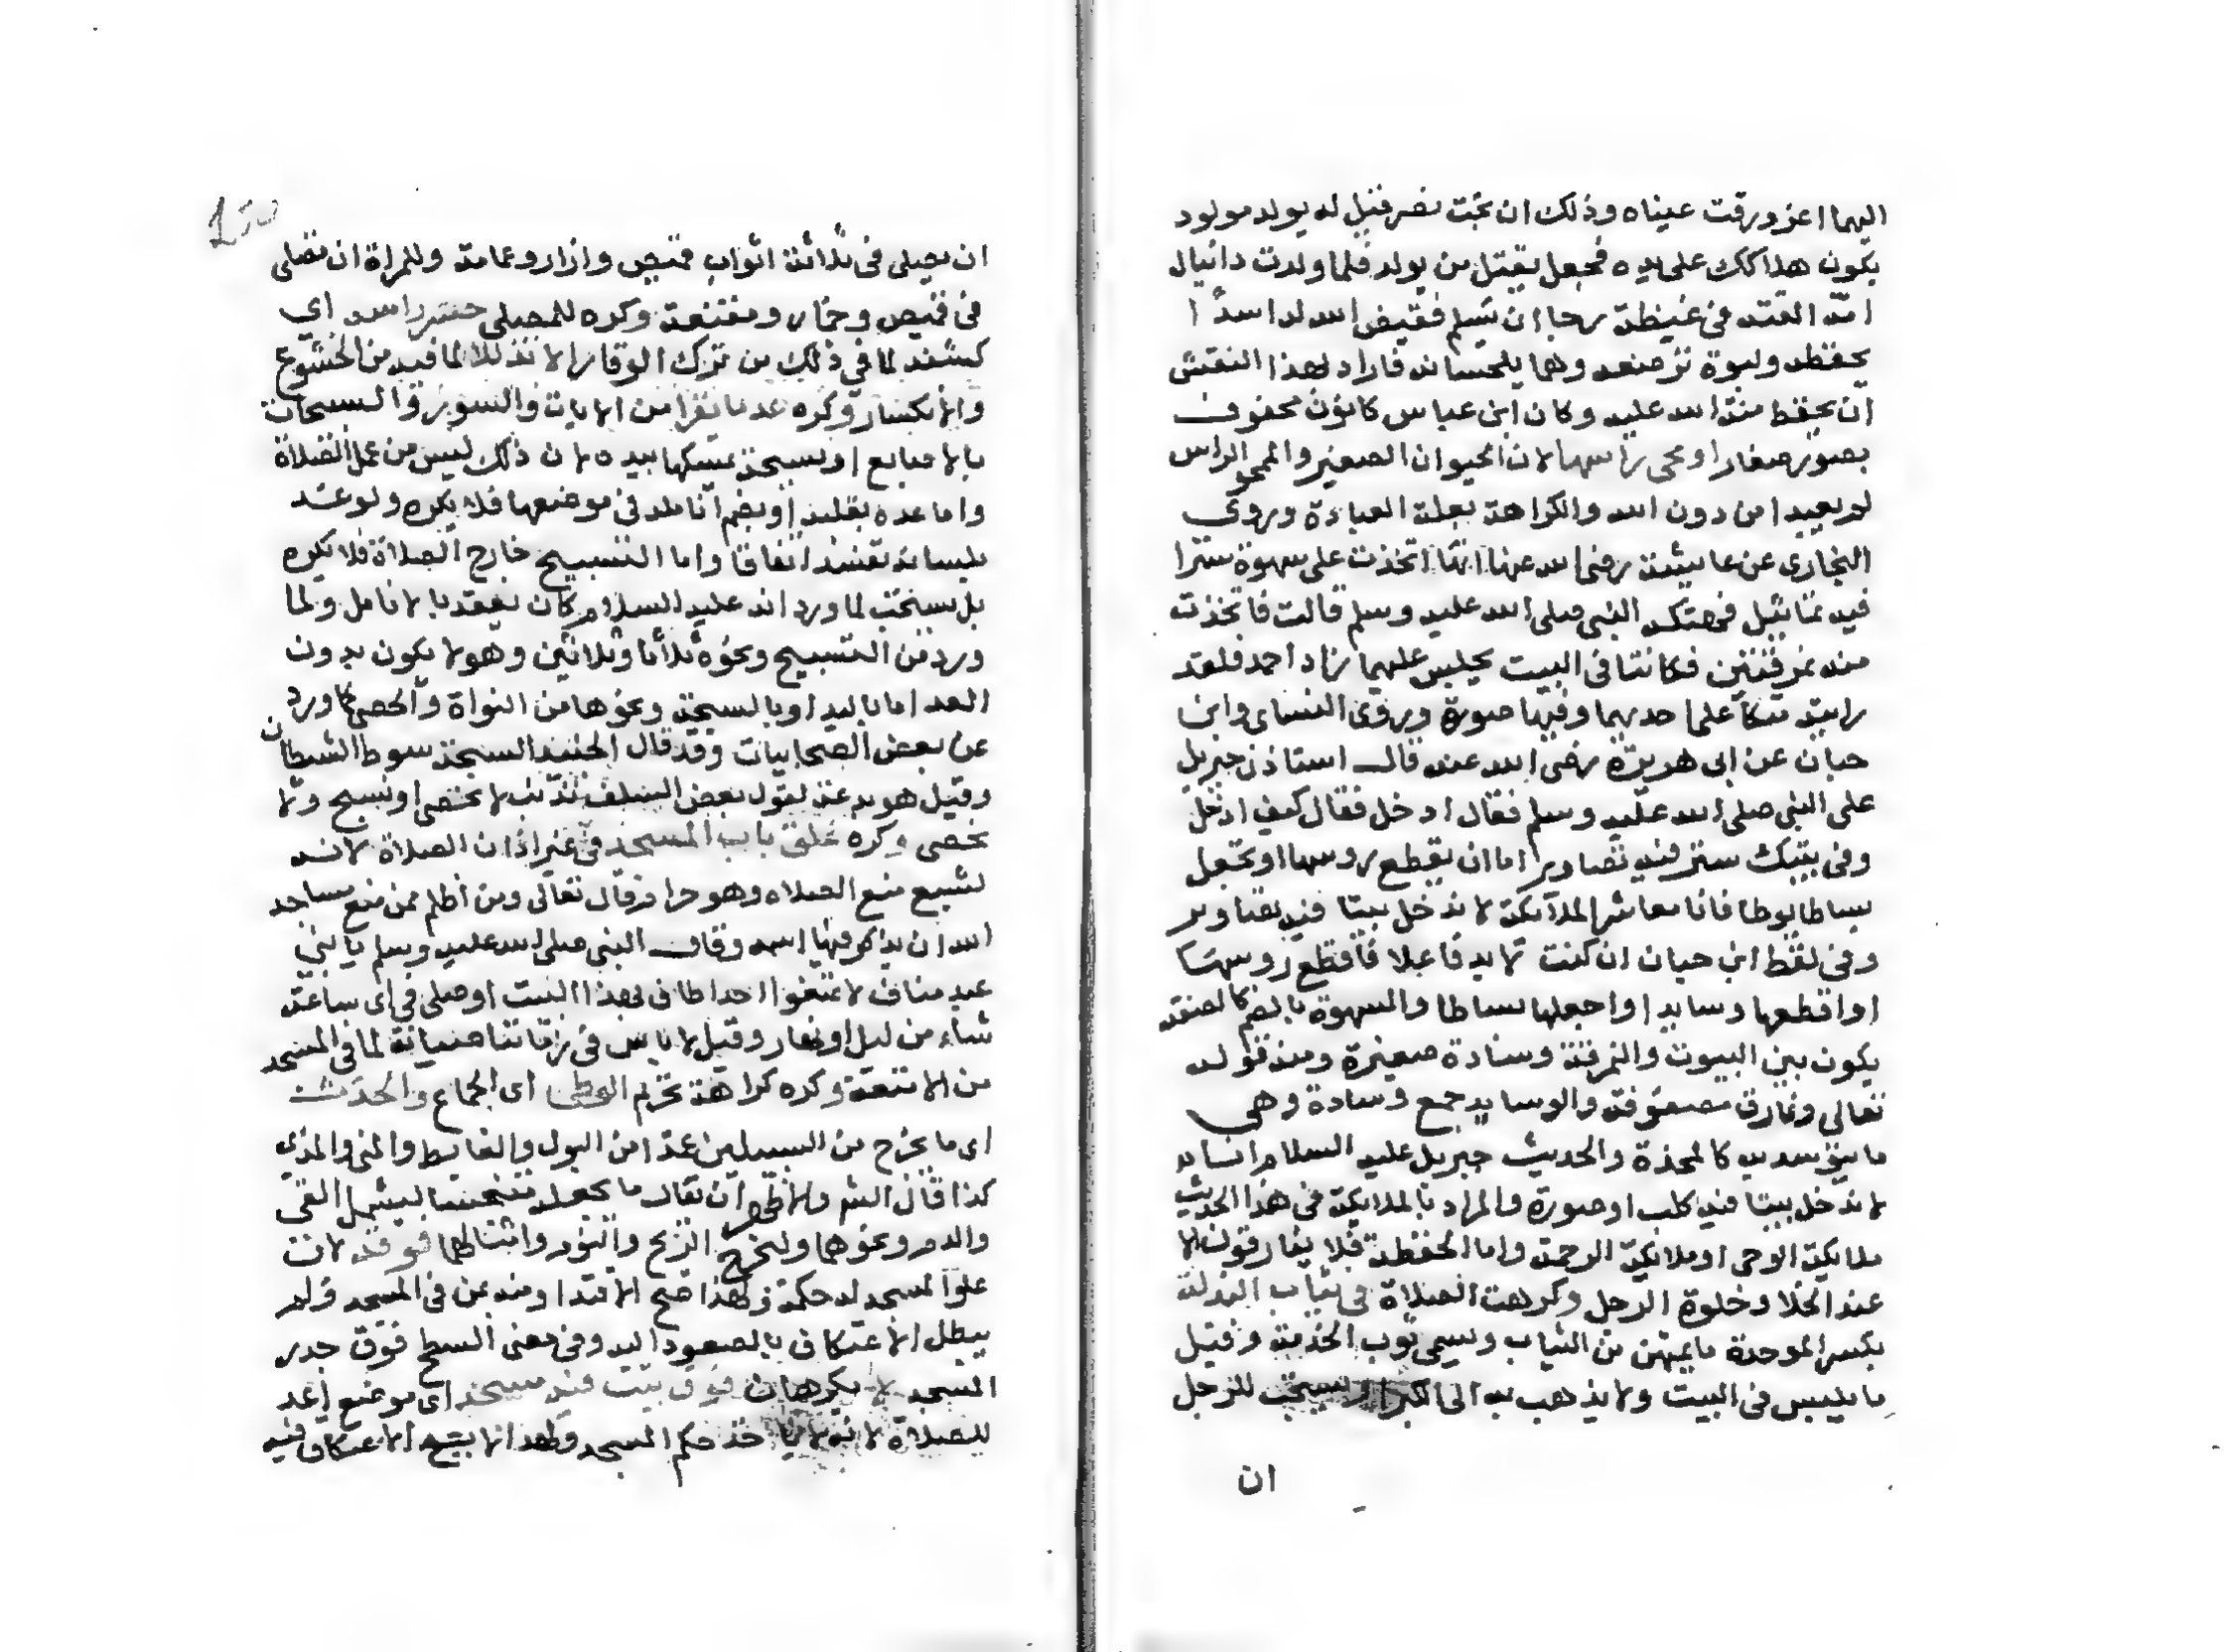 اليهما اغرورقت عيناه وذلك ان بخت نصر قيل له يولد مولود
يكون هلاكك على يده فجعل يقتل من يولد فلما ولدت دانيال
امه القته في غيظة رجا ان يسلم فقيض الله له اسدا
يحفظه ولبوة ترضعه وهما يلحسانه فاراد بهذا النقش
ان يحفظ منة الله عليه وكان ابن عباس كانون محفوف
بصور صغار او محى راسها لان الحيوان الصغير والممحو الراس
لم يعبدا من دون الله والكراهة بعلة العبادة وروى
البخارى عن عايشة رضي الله عنها انها اتخذت على سهوة سترا
فيه تماثيل فهتكه النبي صلى الله عليه وسلم قالت فاتخذت
منه نمرقتين فكانتا في البيت يجلس عليهما زاد احمد فلقد
رايته متكأ على احديهما وفيها صورة وروى النساى وابن
حبان عن ابي هريرة رضى الله عنه قال استاذن جبريل
على النبي صلى الله عليه وسلم فقال ادخل فقال كيف ادخل
وفي بيتك ستر فيه تصاوير اما ان يقطع روسها او تجعل
بساطا يوطا فانا معاشر الملآئكة لا ندخل بيتا فيه تصاوير
وفي لفظ ابن حبان ان كنت لابد فاعلا فاقطع روسها
او اقطعها وسايد او اجعلها بساطا والسهوة بالضم كالصفة
يكون بين البيوت والنمرقة وسادة صغيرة ومنه قوله
تعالى ونمارق مصفوفة والوسايد جمع وسادة وهي
ما يتوسد به كالمخدة والحديث جبريل عليه السلام انا
لا ندخل بيتا فيه كلب او صورة والمراد بالملايكة في هذا الحديث
ملايكة الوحى او ملائكة الرحمة واما الحفظة فلا يفارقون الا
عند الخلا وخلوة الرجل وكرهت الصلاة في ثياب البذلة
بكسر الموحدة ما يمتهن من الثياب ويسمى ثوب الخدمة وقيل
ما يلبس في البيت ولا يذهب به الى الكبرا ويستحب للرجل
ان
ان يصلى في ثلاثة اثواب قميص وازار وعمامة وللمراة ان تصلى
في قميص وخمار ومقنعة وكره للمصلي حسر راسه اي
كشفه لما في ذلك من ترك الوقار الا تذللا لما فيه من الخشوع
والانكسار وكره عد ما نقرا من الايات والسور والتسبيحات
بالاصابع او بسبحة يمسكها بيده لان ذلك ليس من عمل الصلاة
واما عده بقلبه او بضم انامله في موضعها فلا يكره ولو عده
بلسانه تفسد اتفاقا واما التسبيح خارج الصلاة فلا يكره
بل يستحب لما ورد انه عليه السلام كان يعقد بالانامل ولما
ورد من التسبيح ونحوه ثلاثا وثلاثين وهو لا يكون بدون
العد اما باليد او بالسبحة ونحوها من النواة والحصى كما ورد
عن بعض الصحابيات وقد قال الجنيد السبحة سوط الشيطان
وقيل هو بدعة لقول بعض السلف نذنب لا نحصى او نسبح ولا
نحصى وكره غلق باب المسجد في غير اذان الصلاة لانه
يشبه منع الصلاه وهو حرام قال تعالى ومن اظلم ممن منع مساجد
الله ان يذكر فيها اسمه وقال النبي صلى الله عليه وسلم يا بني
عبد مناف لا تمنعوا احدا طاف بهذا البيت او صلى في اي ساعة
شاء من ليل او نهار وقيل لا باس في زماننا صيانة لما في المسجد
من الامتعة وكره كراهة تحريم الوطى اى الجماع والحدث
اى ما يخرج من السبيلين عمدا من البول والغايط والمنى والمذى
كذا قال الشم والاظهر ان يقال ما يجعله متنجسا ليشمل القى
والدم ونحوهما وليخرج الريح والنوم وامثالهما فوقه لان
علو المسجد له حكمه ولهذا صح الاقتدا ومنه عن في المسجد ولم
يبطل الاعتكاف بالصعود اليه وفي معنى السطح فوق جدر
المسجد لا يكرهان فوق بيت فيه مسجد اى موضع اعد
للصلاة لانه لا ياخذ حكم المسجد ولهذا لا يصح الاعتكاف فيه